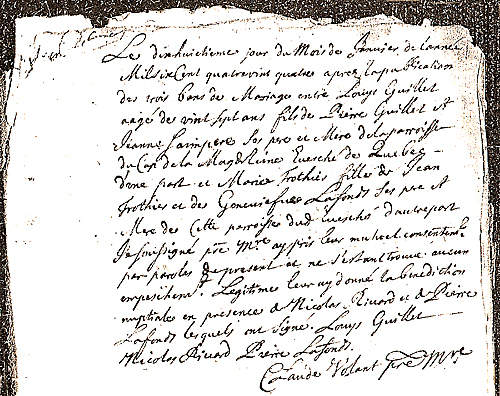 Le dixhuictieme jour du Mois de Janvier de l'annee
Mil six Cent quatrevint quatre apres la publication
des trois bans de Mariage entre Louys Guillet
aagé de vint sept ans fils de Pierre Guillet et
Jeanne Sainpere Ses pre et Mere de la parroisse
du Cap de la Magdeleine Evesché de Quebec
d'une part et Marie Trothier fille de Jean
Trothier et de Geneviefve Lafond Ses pre et
Mere de Cette parroisse dud evesché d'autre part
Je soussigné pre Mre ay pris leur mutuel consentemt
par paroles de present et ne s'estant trouvé aucun
empeschemt Legitime leur ay donné la benediction
nuptiale en presence de Nicolas Rivard et de Pierre
Lafond lesquels ont signé. Louys Guillet
Nicolas Rivard Pierre Lafond.
Claude Volant pre Mre